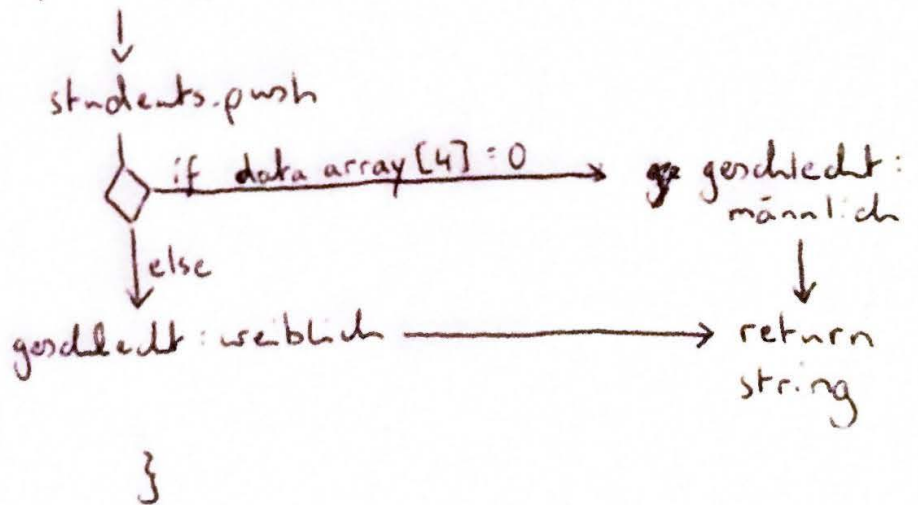 students.push
if data array[4] = 0
geschlecht:
männlich
else
geschlecht: weiblich
return
string
}